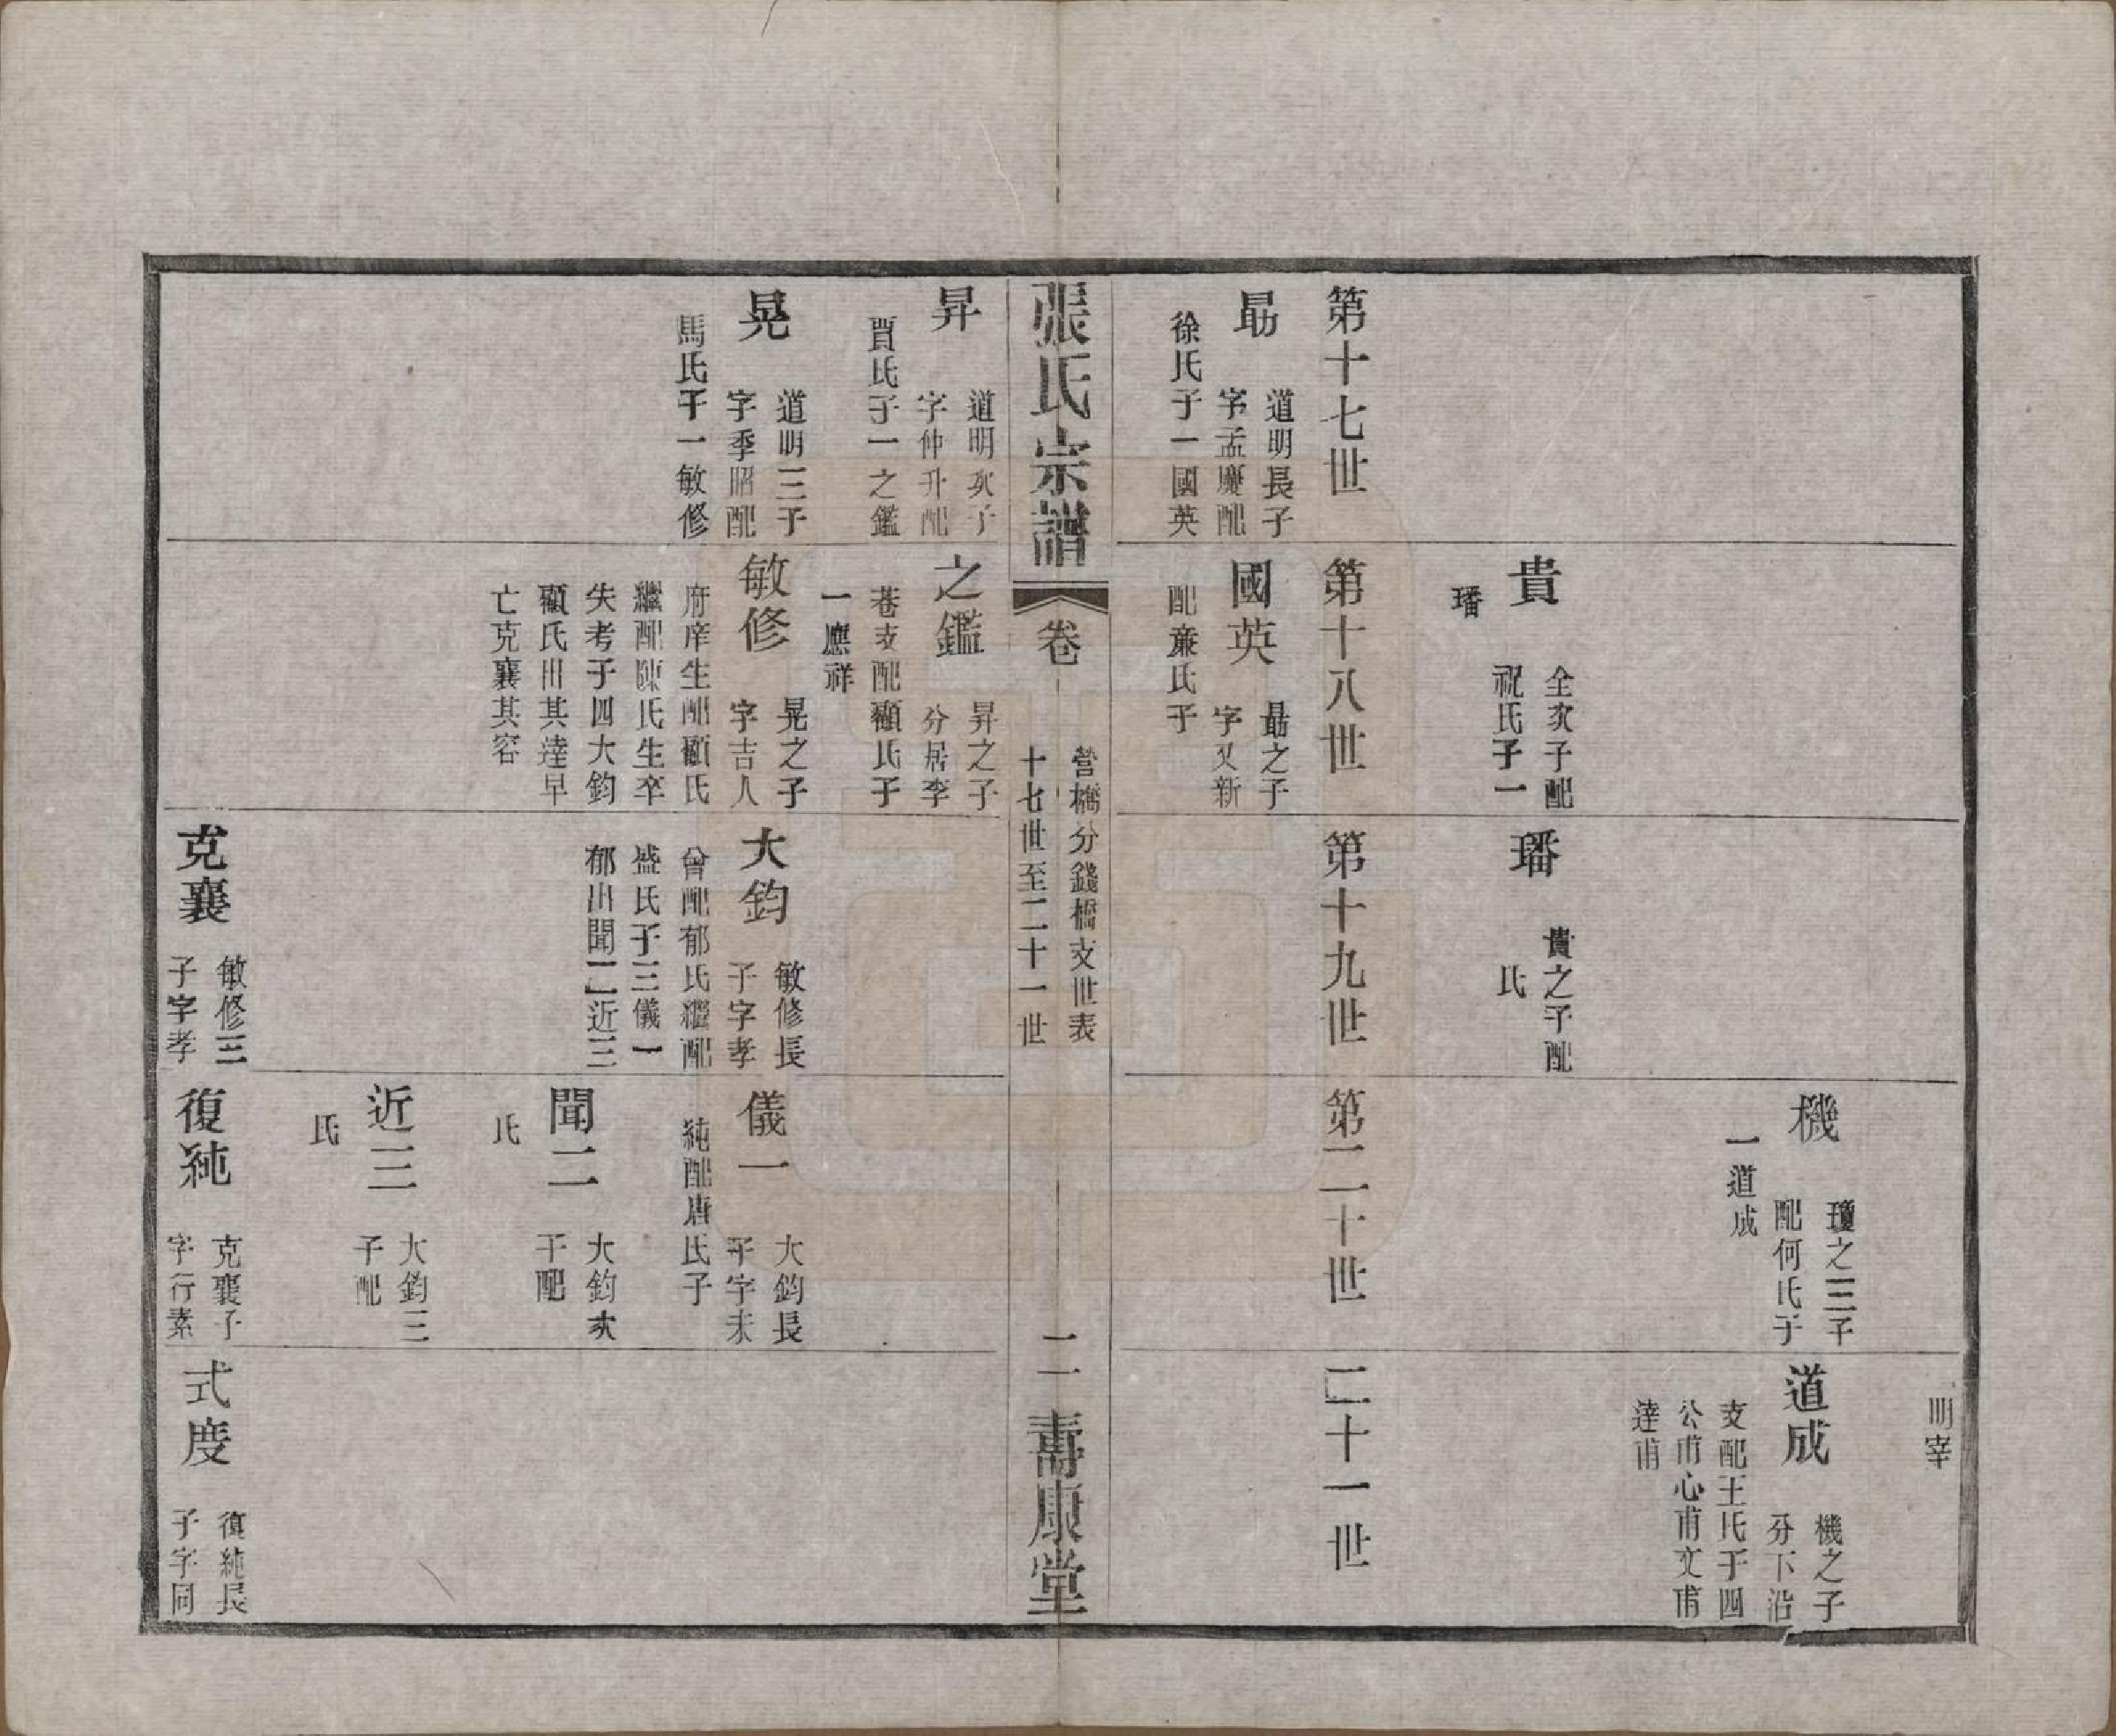 明宰
機
瓊之三子
配何氏子
一道成
道成
機之子
分下沿
支配王氏子四
公甫心甫文甫
達甫
貴
全次子配
祝氏子一
璠
璠
貴之子配
氏
第十七世
第十八世
第十九世
第二十世
二十一世
勗
道明長子
字孟慶配
徐氏子一國英
國英
勗之子
字又新
配蔴氏子
張氏宗譜
卷
營橋分錢橋支世表
十七世至二十一世
二
壽康堂
昇
道明次子
字仲升配
賈氏子一之鑑
之鑑
昇之子
分居李
巷支配顧氏子
一應祥
晃
道明三子
字季昭配
馬氏子一敏修
敏修
晃之子
字吉人
府庠生配顧氏
繼配陳氏生卒
失考子四大鈞
顧氏出其達早
亡克襄其容
大鈞
敏修長
子字孝
曾配郁氏繼配
盛氏子三儀一
郁出聞二近三
儀一
大鈞長
子字未
純配唐氏子
聞二
大鈞次
子配
氏
近三
大鈞三
子配
氏
克襄
敏修三
子字孝
復純
克襄子
字行素
式度
復純長
子字同